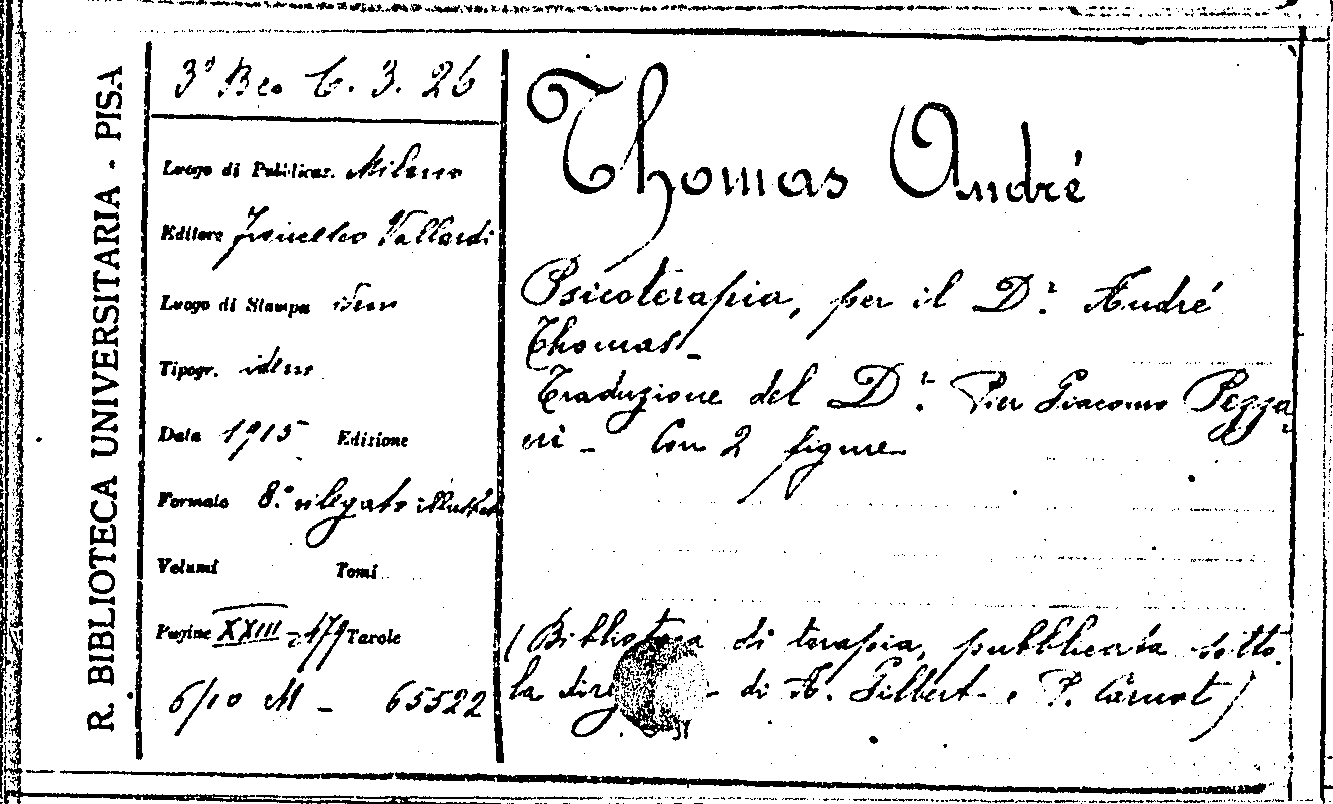 R. BIBLIOTECA UNIVERSITARIA - PISA
3º B C. 3. 26
Luogo di Pubblicaz. Milano
Editore Francesco Vallardi
Luogo di Stampa idem
Tipogr. idem
Data 1915 Edizione
Formato 8.º rilegato illustrato
Volumi Tomi
Pagine XXIII - 479 Tavole
6/10 M - 65522
Thomas André
Psicoterapia, per il D.r André
Thomas -
Traduzione del D.r Pier Giacomo Pezza-
eri - Con 2 figure
(Biblioteca di terapia, pubblicata sotto
la di A. Gilbert e P. Carnot)